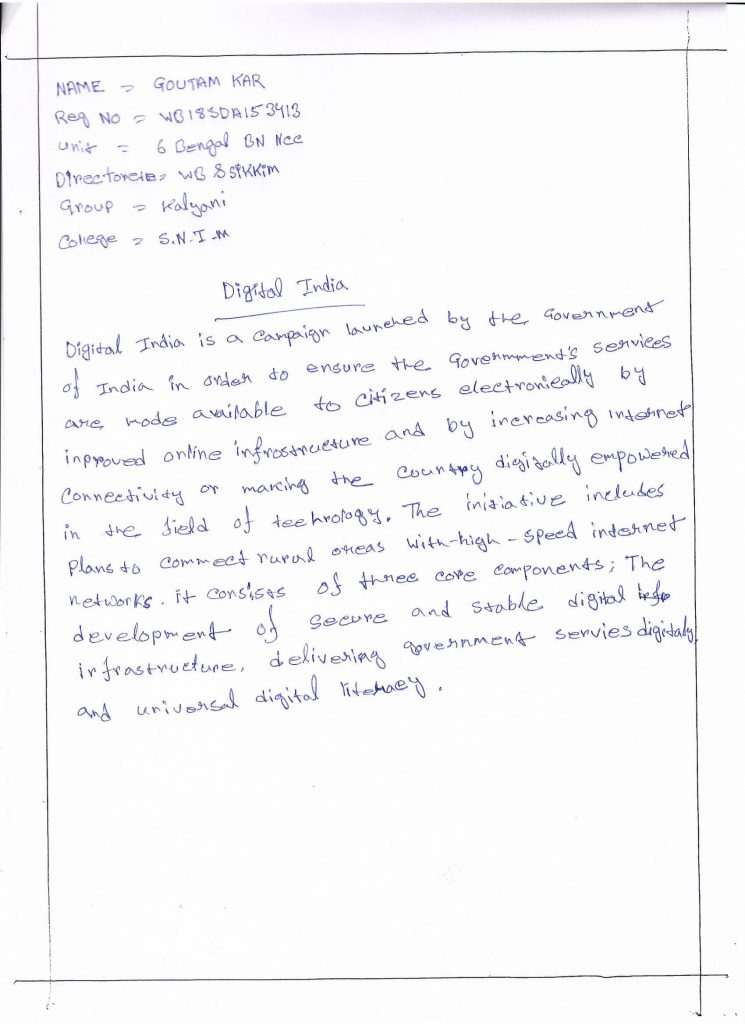 NAME = GOUTAM KAR
Reg No = WB18SDA153413
Unit = 6 Bengal BN Ncc
Directorete = WB & Sikkim
Group = Kalyani
College = S.N.I.M
Digital India
Digital India is a Campaign launched by the Government
of India in order to ensure the Governmment's services
are made available to Citizens electronically by
inproved online infrastructure and by increasing internet
Connectivity or making the Country digitally empowered
in the field of technology. The initiative includes
plans to commect rural areas with-high-speed internet
networks. it consists of three core components; The
development of secure and stable digital
infrastructure, delivering government servies digitaly
and universal digital literacy.